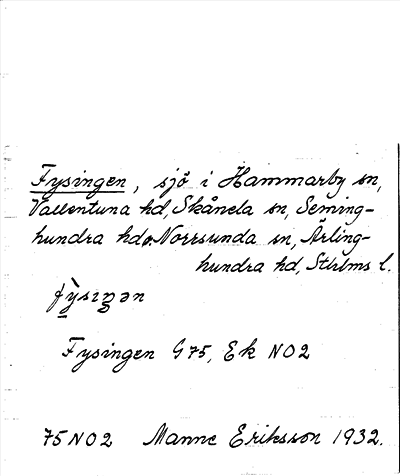 Fysingen, sjö i Hammarby sn,
Vallentuna hd, Skånela sn, Seming-
hundra hd o. Norrsunda sn, Ärling-
hundra hd, Sthlms l.
Fysingen G75, Ek NO2
75NO2 Manne Eriksson 1932.